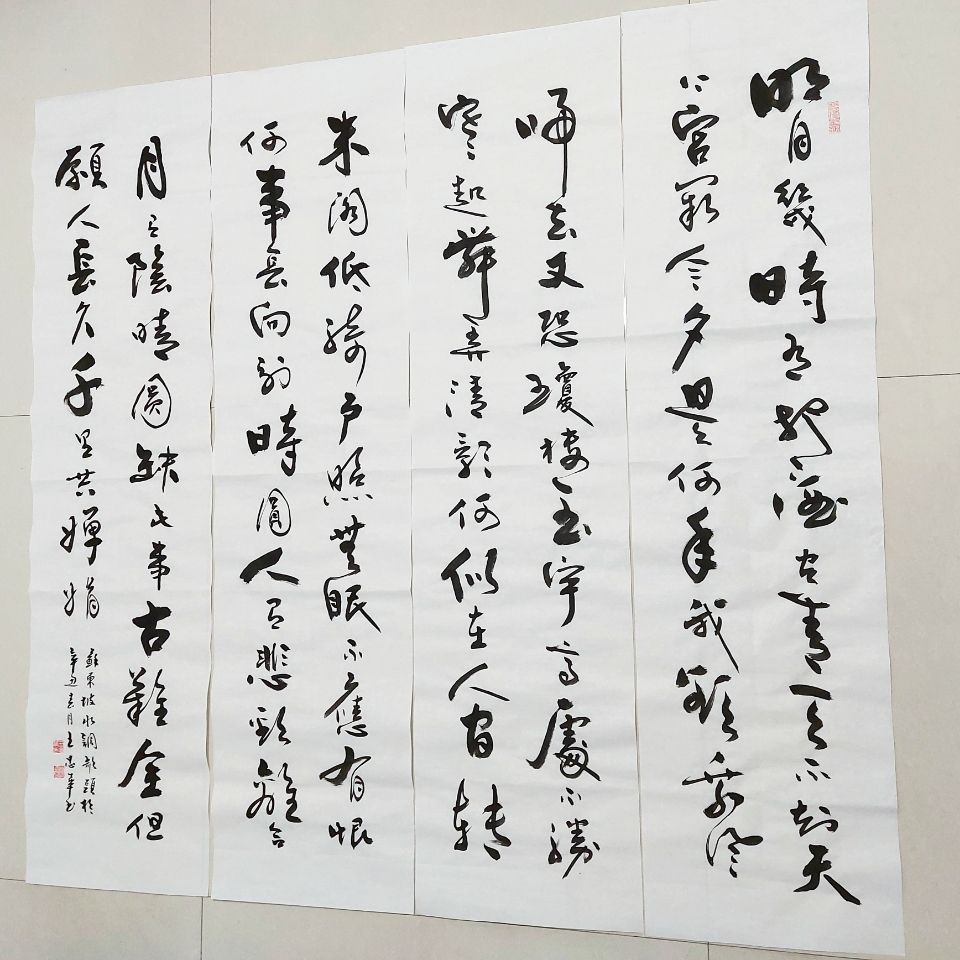 明月幾時有把酒問青天不知天
上宮闕今夕是何年我欲乘風
歸去又恐瓊樓玉宇高處不勝
寒起舞弄清影何似在人間转
朱阁低綺户照無眠不應有恨
何事長向别時圓人有悲歡離合
月有陰晴圓缺此事古難全但
願人長久千里共嬋娟
蘇東坡水調歌頭於
辛丑春月王志華书